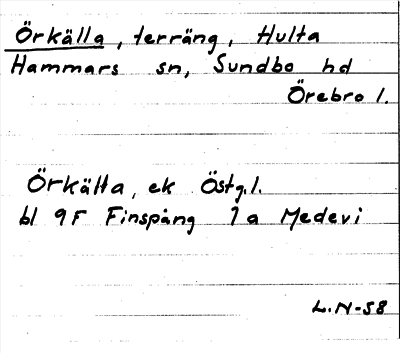 Örkälla, terräng, Hulta
Hammars sn, Sundbo hd
Örebro l.
Örkälla, ek Östg.l.
bl 9F Finspång 1a Medevi
L.N-58